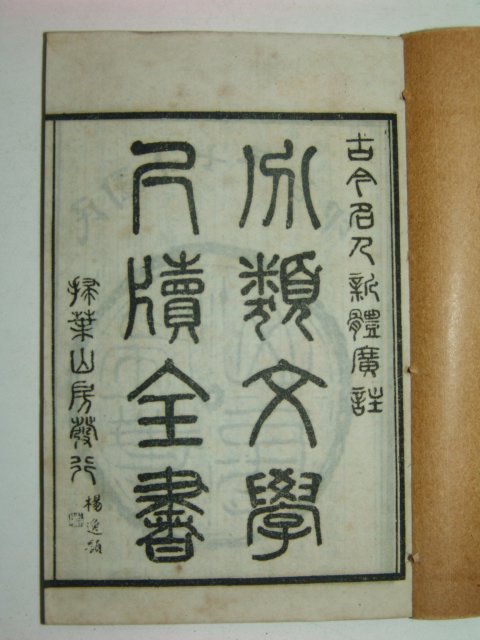 古今名人新體廣註
分類文學
尺牘全書
掃葉山房發行
楊逸